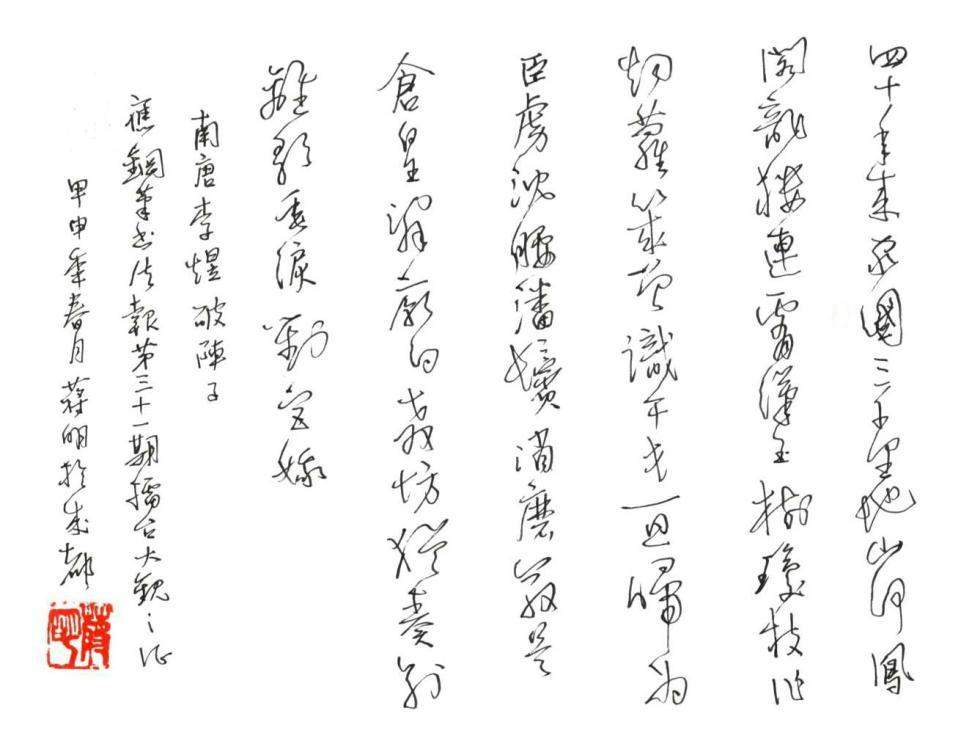 四十年来家國三千里地山河鳳
閣龍樓連霄漢玉樹瓊枝作
烟蘿幾曾識干戈一旦歸為
臣虜沈腰潘鬢消磨最是
倉皇辭廟日教坊猶奏別
離歌垂淚對宮娥
南唐李煜破陣子
應鋼筆書法報第三十一期擂台大觀之征
甲申年春月蔣明於成都
蔣明